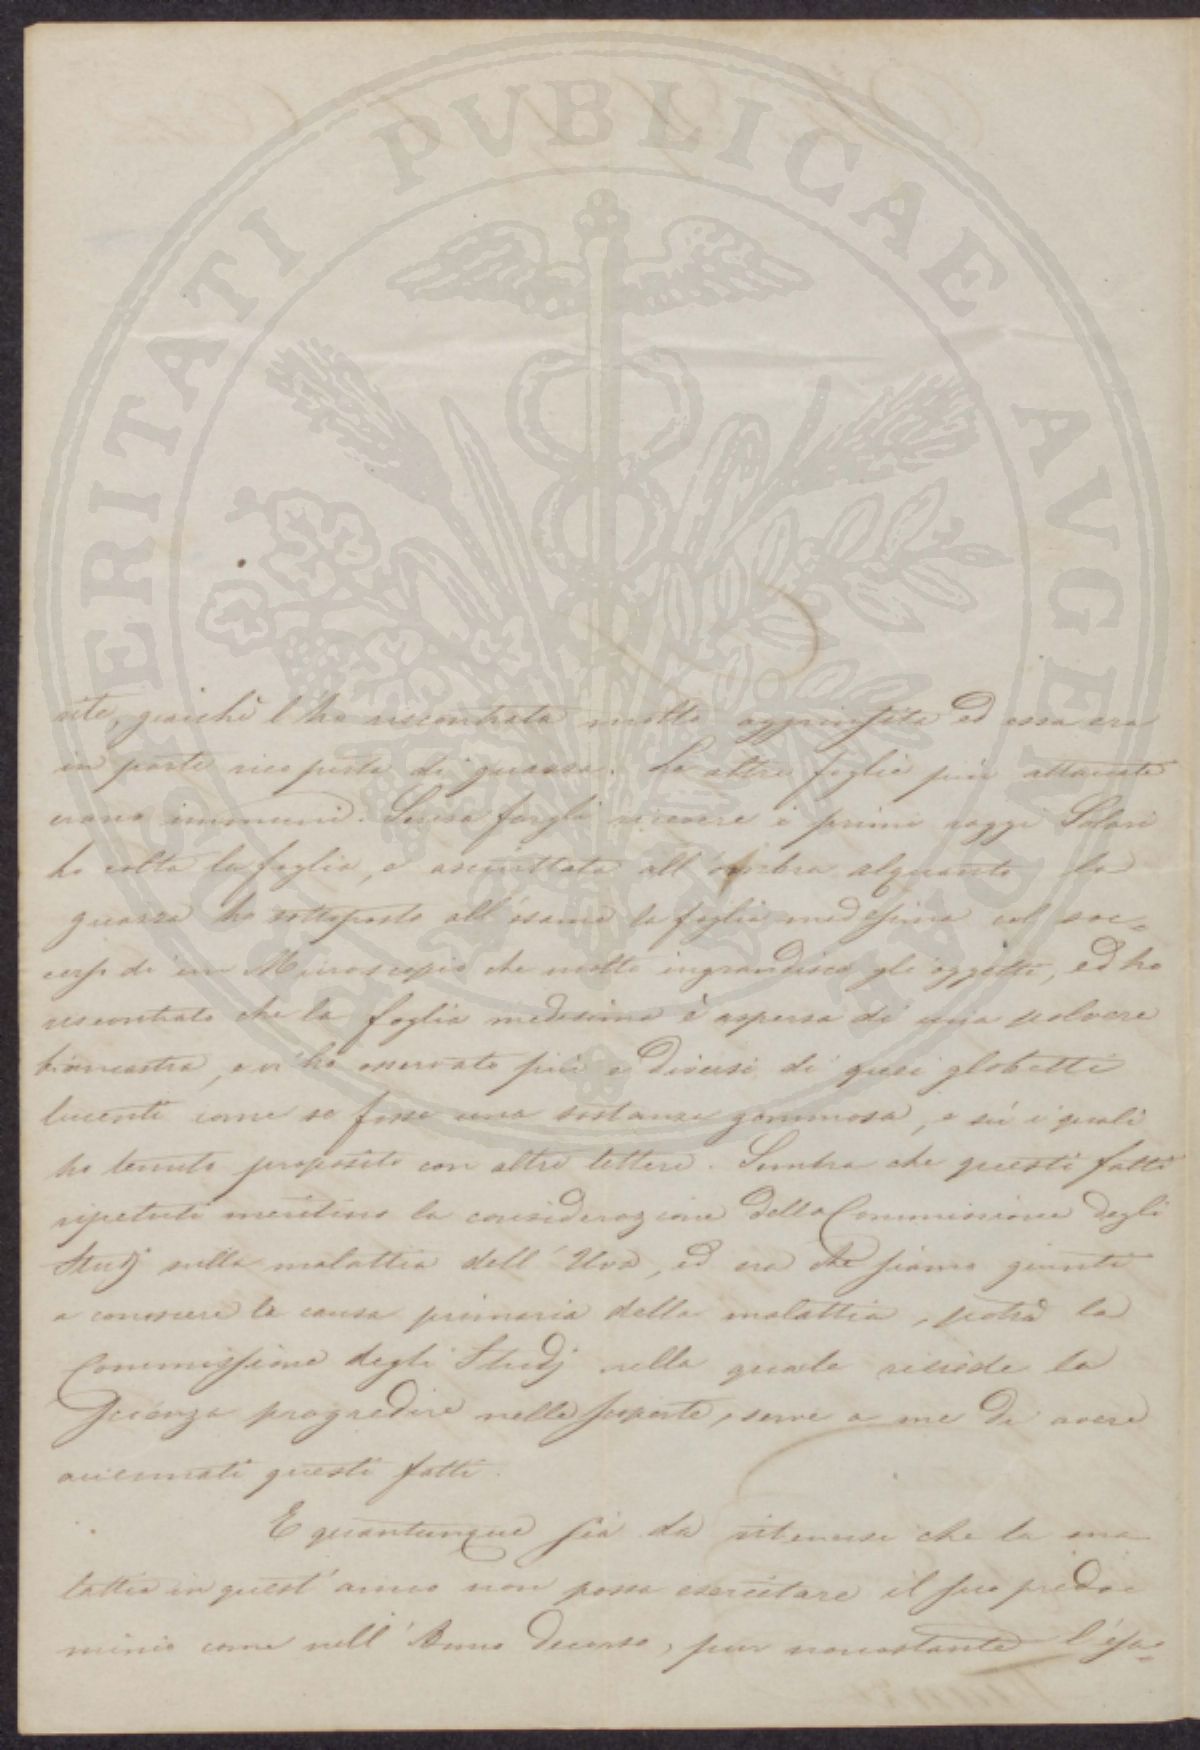 PROSPERITATI PVBLICAE AVGENDAE
vite, giacchè l'ho riscontrata molto appassita ed essa era
in parte ricoperta di guazza. Le altre foglie più attaccate
erano immuni. Senza fargli ricevere i primi raggi Solari
ho colta la foglia, e asciuttata all'ombra alquanto la
guazza ho sottoposto all'esame la foglia medesima col soc-
corso di un Microscopio che molto ingrandisce gli oggetti, ed ho
riscontrato che la foglia medesima è aspersa di una polvere
biancastra, e vi ho osservato più e diversi di quei globetti
lucenti come se fosse una sostanza gommosa, e sù i quali
ho tenuto proposito con altre lettere. Sembra che questi fatti
ripetuti meritino la considerazione della Commissione degli
Studj sulla malattia dell'Uva, ed ora che siamo giunti
a conoscere la causa primaria della malattia, potrà la
Commissione degli Studj nella quale risiede la
Scienza progredire nelle scoperte, serve a me di avere
accennati questi fatti.
E quantunque sia da ritenersi che la ma-
lattia in quest'anno non possa esercitare il suo predo-
minio come nell'Anno decorso, pur nonostante l'espe-